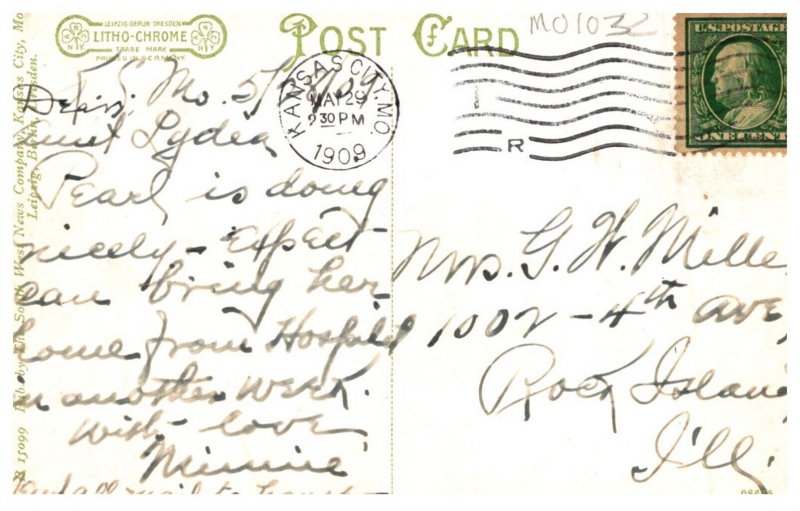 LEIPZIG-BERLIN-DRESDEN
LITHO-CHROME
TRADE MARK
PRINTED IN GERMANY.
POST CARD
MO1032
U.S. POSTAGE
ONE CENT
KANSAS CITY, MO.
MAY 29
2 30 PM
1909
R
Mo. 5/
Aunt Lydea
Pearl is doing
nicely - Expect
can bring her
home from Hospital
in another week.
With love
Minnie
all mail to
Mrs. G. W. Mille
1002 - 4th ave,
Rock Islan
Ill.
B 15099 Pub. by The South West News Company, Kansas City, Mo
Leipzig, Berlin, Dresden.